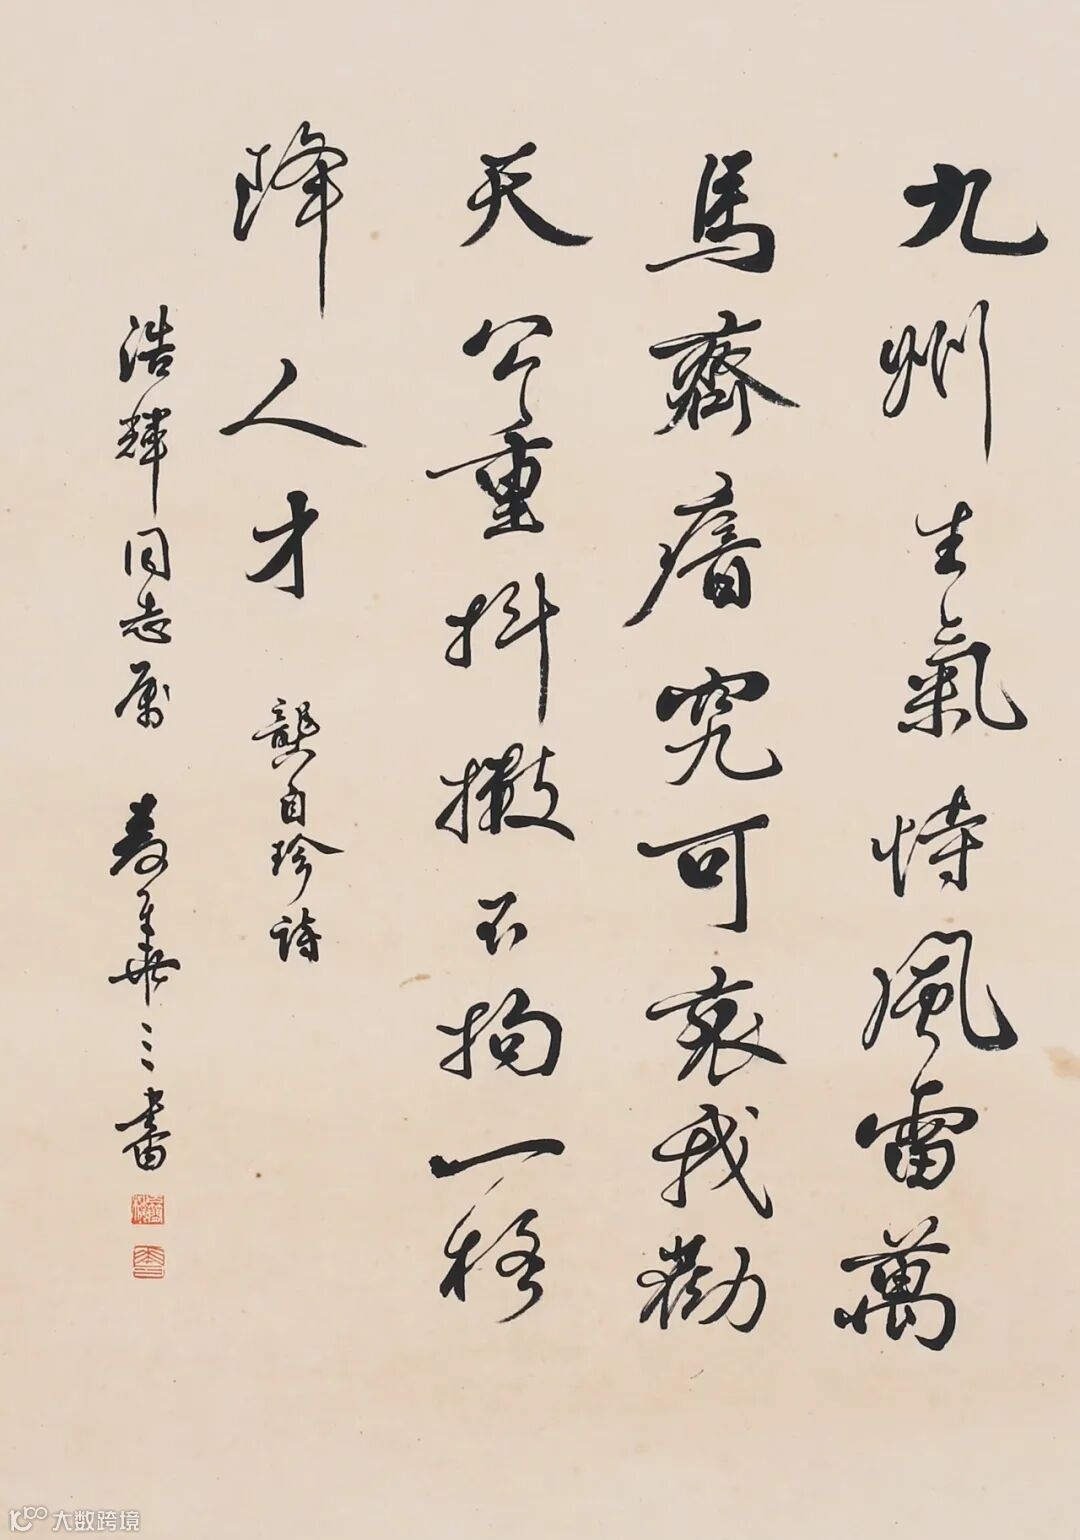 九州生氣恃風雷萬
馬齊瘖究可哀我勸
天公重抖擻不拘一格
降人才
龔自珍詩
浩輝同志属 麥華三書
大数跨境